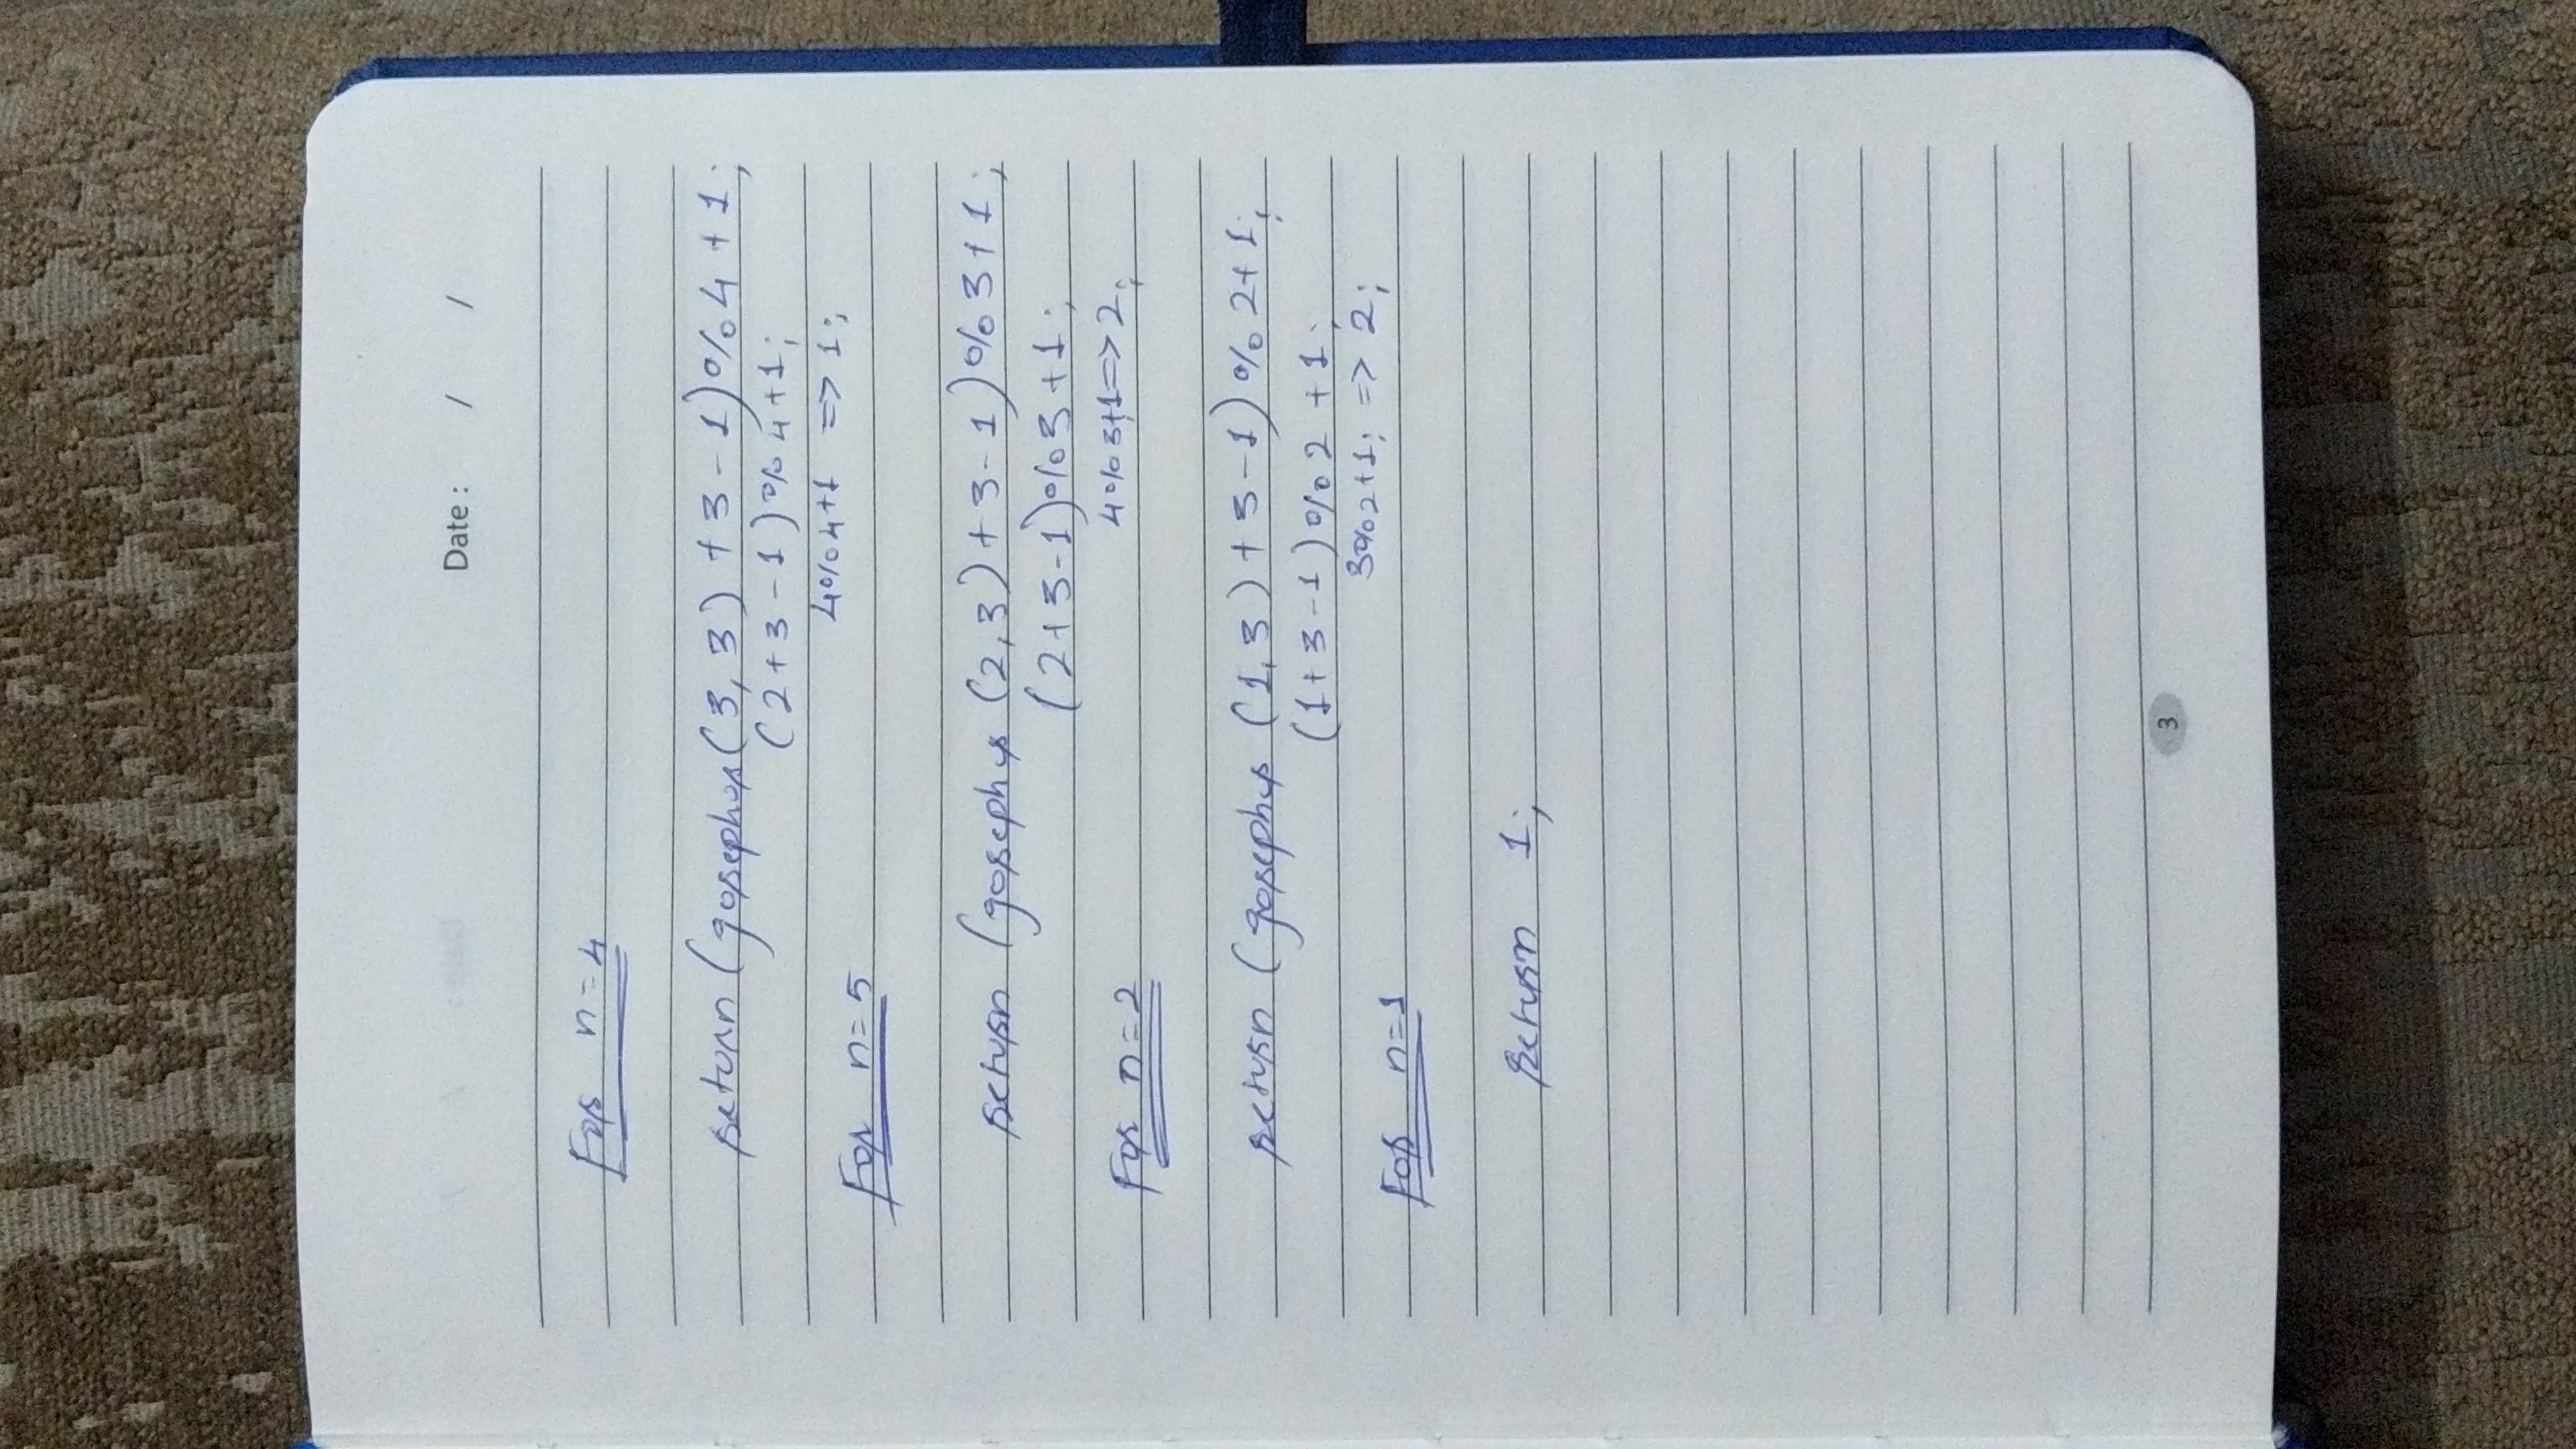 Date : / /
For n=4
return (josephus(3, 3) + 3 - 1) % 4 + 1;
(2+3-1) % 4+1;
4%4+1 => 1;
For n=5
return (josephus (2,3) + 3-1) % 3+1;
(2+3-1)%3+1;
4%3+1=>2;
For n=2
return (josephus (1,3) + 3-1) % 2+1;
(1+3-1)%2 +1;
3%2+1; => 2;
For n=1
return 1;
3